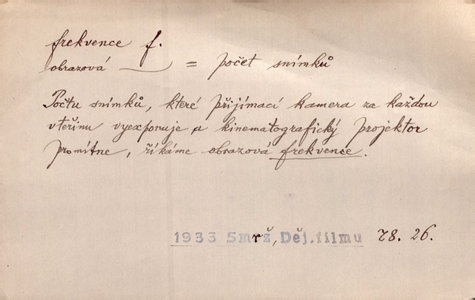 frekvence f.
obrazová = počet snímků
Počtu snímků, které přijímací kamera za každou
vteřinu vyexponuje a kinematografický projektor
promítne, říkáme obrazová frekvence.
1933 Smrž, Děj. filmu 78. 26.